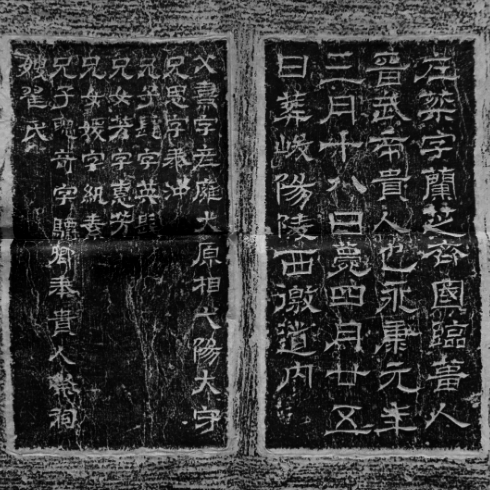 左棻字蘭芝齊國臨菑人
晉武帝貴人也永康元年
三月十八日薨四月廿五
日葬峻陽陵西徼道內
父熹字彥雍太原相弋陽太守
兄思字泰沖
兄子髦字英髦
兄女芳字惠芳
兄女媛字紈素
兄子聰奇字驃卿奉貴人祭祠
嫂翟氏